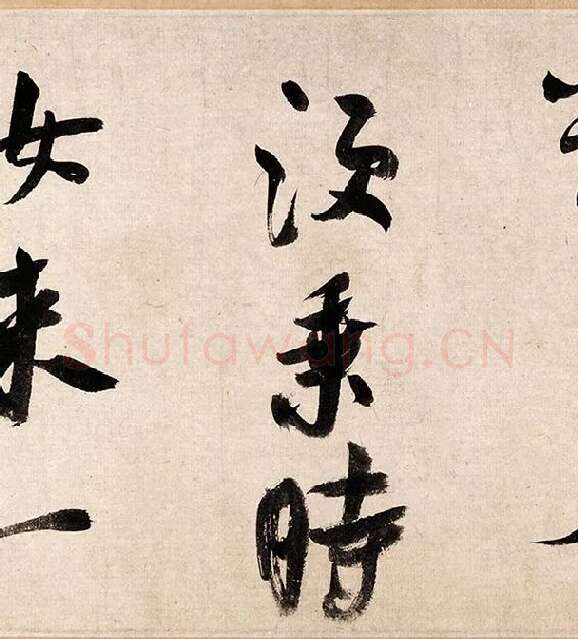 須乘時
女来一
Shufawang.CN